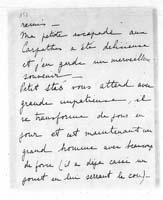 remis —
Ma petite escapade aux
Carpathes a été délicieuse
et j'en garde un merveilleux
souvenir —
Petit vous attend avec
grande impatience, il
se transforme de jour en
jour et est maintenant un
grand homme avec beaucoup
de force (il a déjà cassé un
en lui serrant le cou) —